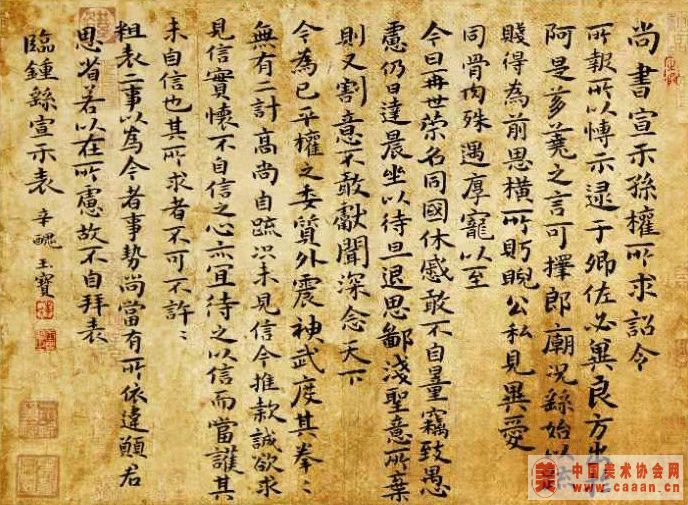 尚書宣示孫權所求詔令
所報所以博示逮于卿佐必冀良方出於
阿是芻蕘之言可擇郎廟況繇始以疏
賤得為前恩橫所眄睨公私見異愛
同骨肉殊遇厚寵以至
今日再世榮名同國休慼敢不自量竊致愚
慮仍日達晨坐以待旦退思鄙淺聖意所棄
則又割意不敢獻聞深念天下
今為已平權之委質外震神武度其拳〻
無有二計高尚自疏況未見信今推款誠欲求
見信實懷不自信之心亦宜待之以信而當護其
未自信也其所求者不可不許〻
粗表二事以為今者事勢尚當有所依違願君
思省若以在所慮故不自拜表
臨鍾繇宣示表 辛醜玉寶
美 中国美术协会网
www.caaan.cn